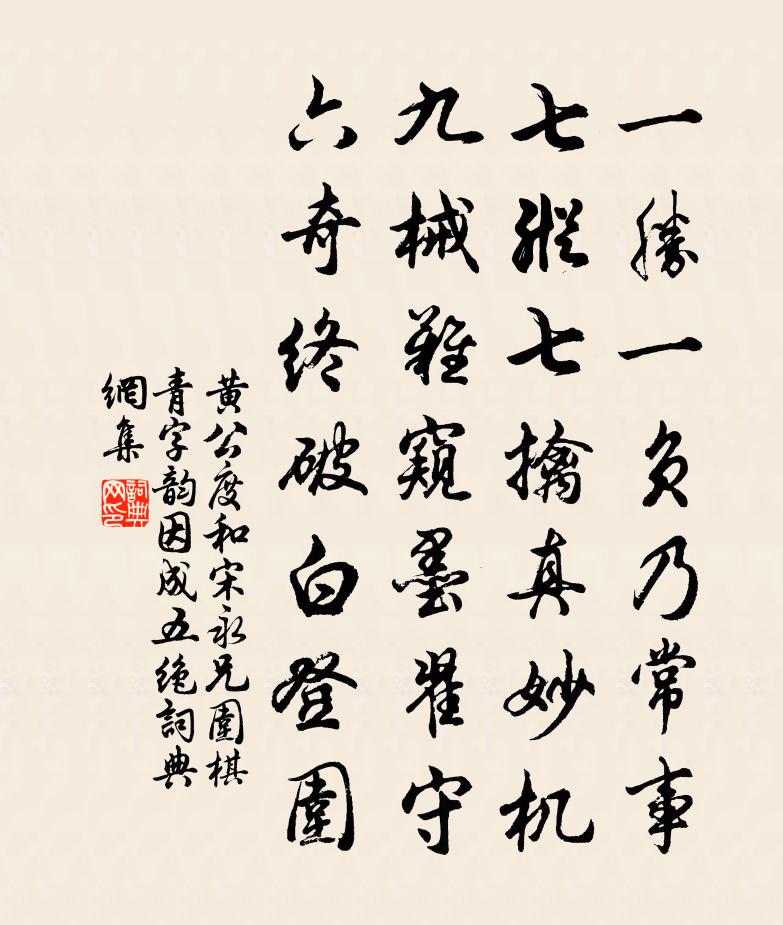 一勝一負乃常事
七縱七擒真妙机
九械難窺墨翟守
六奇終破白登圍
黄公度和宋永兄圍棋
青字韵因成五絶詞典
網集
詞典網印